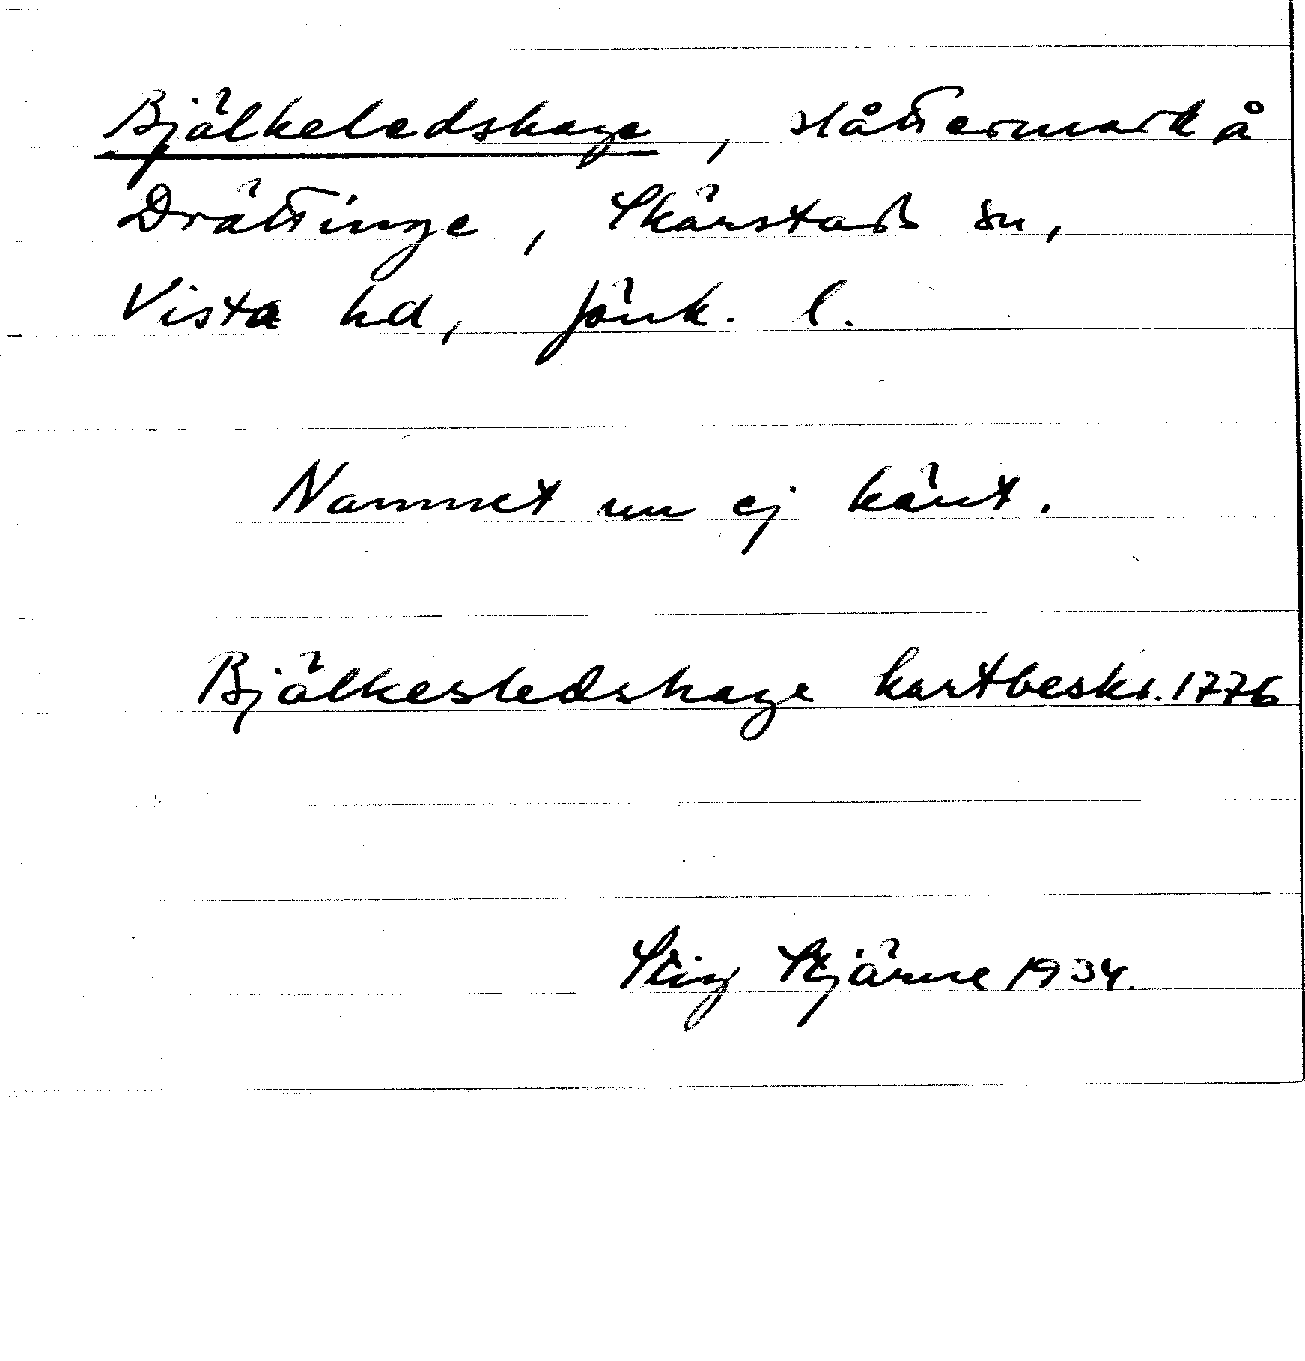 Bjälkeledshage, slåttermark å
Drättinge, Skärstads sn,
Vista hd, Jönk. l.
Namnet nu ej känt.
Bjälkesledshage kartbeskr. 1776
Stig Stjärne 1934.